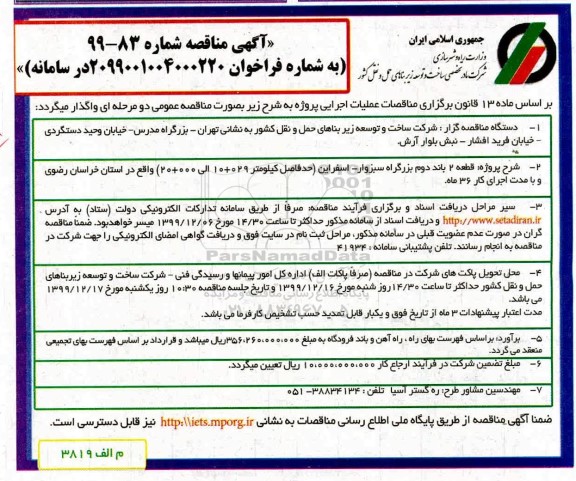 جمهوری اسلامی ایران
وزارت راه و شهرسازی
شرکت مادر تخصصی ساخت و توسعه زیربناهای حمل و نقل کشور
«آگهی مناقصه شماره ۸۳-۹۹
(به شماره فراخوان ۲۰۹۹۰۰۱۰۰۴۰۰۰۲۲۰در سامانه)»
بر اساس ماده ۱۳ قانون برگزاری مناقصات عملیات اجرایی پروژه به شرح زیر بصورت مناقصه عمومی دو مرحله ای واگذار میگردد:
۱- دستگاه مناقصه گزار : شرکت ساخت و توسعه زیر بناهای حمل و نقل کشور به نشانی تهران - بزرگراه مدرس- خیابان وحید دستگردی
- خیابان فرید افشار - نبش بلوار آرش.
۲- شرح پروژه: قطعه ۲ باند دوم بزرگراه سبزوار- اسفراین (حدفاصل کیلومتر ۰۲۹+۱۰ الی ۰۰۰+۲۰) واقع در استان خراسان رضوی
و با مدت اجرای کار ۳۶ ماه.
۳- سیر مراحل دریافت اسناد و برگزاری فرآیند مناقصه: صرفاً از طریق سامانه تدارکات الکترونیکی دولت (ستاد) به آدرس
http://www.setadiran.ir و دریافت اسناد از سامانه مذکور حداکثر تا ساعت ۱۴/۳۰ مورخ ۱۳۹۹/۱۲/۰۶ میسر خواهدبود. ضمنا مناقصه
گران در صورت عدم عضویت قبلی در سامانه مذکور، مراحل ثبت نام در سایت فوق و دریافت گواهی امضای الکترونیکی را جهت شرکت در
مناقصه به انجام رسانند. تلفن پشتیبانی سامانه : ۴۱۹۳۴
۴- محل تحویل پاکت های شرکت در مناقصه (صرفاً پاکات الف) اداره کل امور پیمانها و رسیدگی فنی - شرکت ساخت و توسعه زیربناهای
حمل و نقل کشور حداکثر تا ساعت ۱۴/۳۰ روز شنبه مورخ ۱۳۹۹/۱۲/۱۶ و تاریخ جلسه مناقصه ۱۰:۳۰ روز یکشنبه مورخ ۱۳۹۹/۱۲/۱۷
می باشد.
مدت اعتبار پیشنهادات ۳ ماه از تاریخ فوق و یکبار قابل تمدید حسب تشخیص کارفرما می باشد.
۵- برآورد: براساس فهرست بهای راه ، راه آهن و باند فرودگاه به مبلغ ۳۵۶.۲۶۰.۰۰۰.۰۰۰ریال میباشد و قرارداد بر اساس فهرست بهای تجمیعی
منعقد می گردد.
۶- مبلغ تضمین شرکت در فرآیند ارجاع کار ۱۰.۰۰۰.۰۰۰.۰۰۰ ریال تعیین میگردد.
۷- مهندسین مشاور طرح: ره گستر آسیا تلفن : ۳۸۸۳۴۱۳۴-۰۵۱
ضمنا آگهی مناقصه از طریق پایگاه ملی اطلاع رسانی مناقصات به نشانی http:\\iets.mporg.ir نیز قابل دسترسی است.
م الف ۳۸۱۹